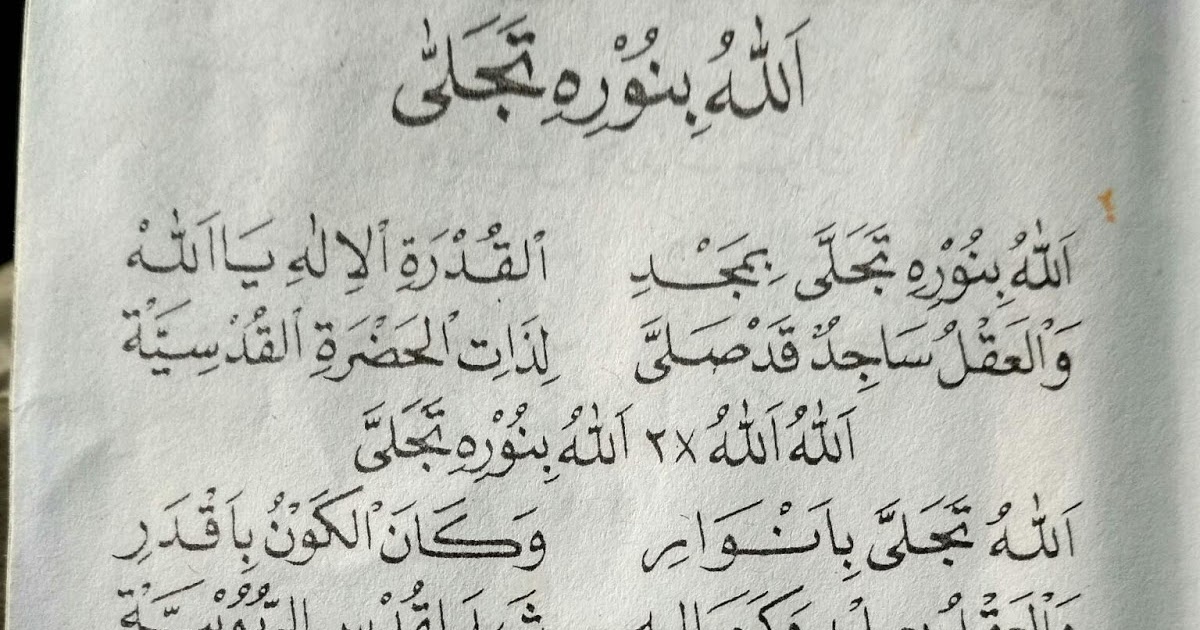 اَللّٰهُ بِنُوْرِهِ تَجَلَىّٰ
اَللّٰهُ بِنُوْرِهِ تَجَلَّى بِمَجْدِ اْلقُدْرَةِ اْلاِلٰهِ يَااَللّٰهْ
وَاْلعَقْلُ سَاجِدٌ قَدْصَلىَّ لِذَاتِ اْلحَضْرَةِ اْلقُدْسِيَّةْ
اَللّٰهُ اَللّٰهُ ٢x اَللّٰهُ بِنُوْرِهِ تَجَلىَّ
اَللّٰهُ تَجَلىَّ بِاَنْوَارِ وَكَانَ اْلكَوْنُ بِاَقْدَرِ
وَاْلعَقْلُ